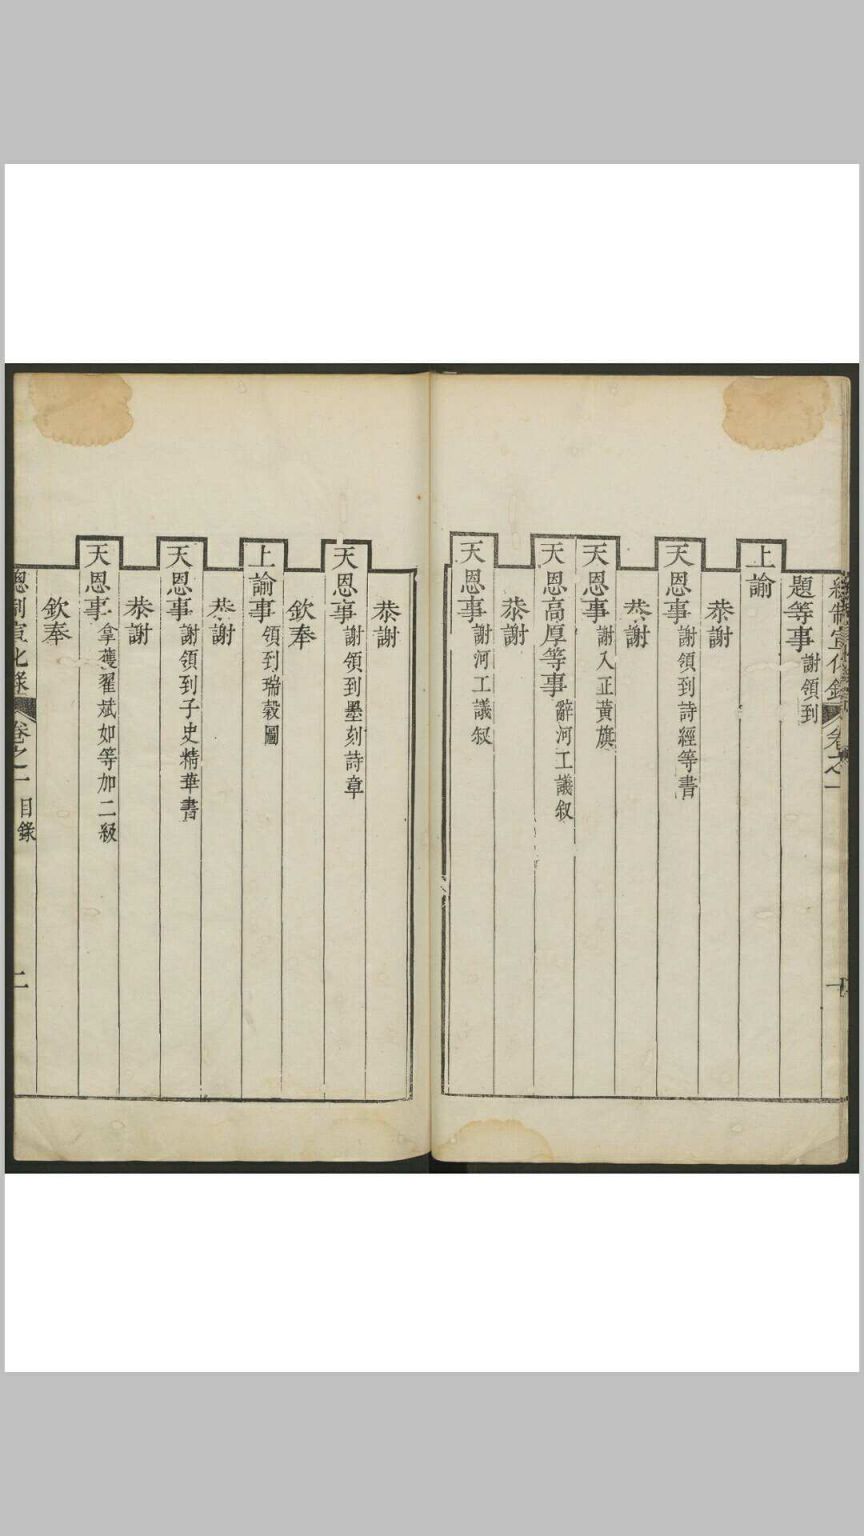 總制宣化錄 卷之一
題等事 謝領到
上諭
恭謝
天恩事 謝領到詩經等書
恭謝
天恩事 謝入正黃旗
天恩高厚等事 辭河工議叙
恭謝
天恩事 謝河工議叙
恭謝
天恩事 謝領到墨刻詩章
欽奉
上諭事 領到瑞穀圖
恭謝
天恩事 謝領到子史精華書
恭謝
天恩事 拿獲翟斌如等加二級
欽奉
總制宣化錄 卷之一 目錄 二